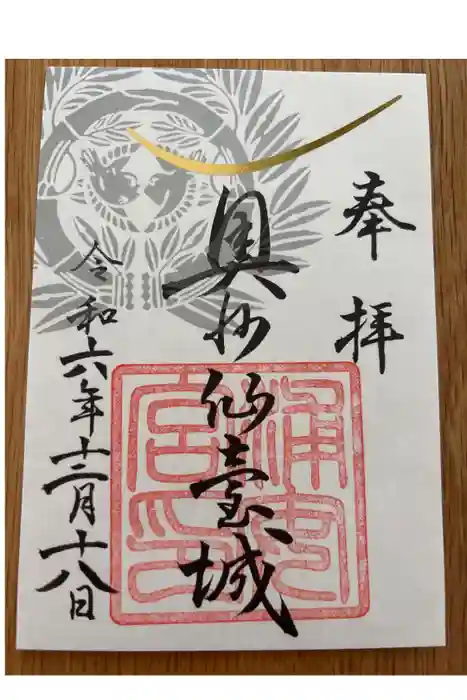 奉拝
奥州仙臺城
令和六年十二月十八日
浦安
宮印